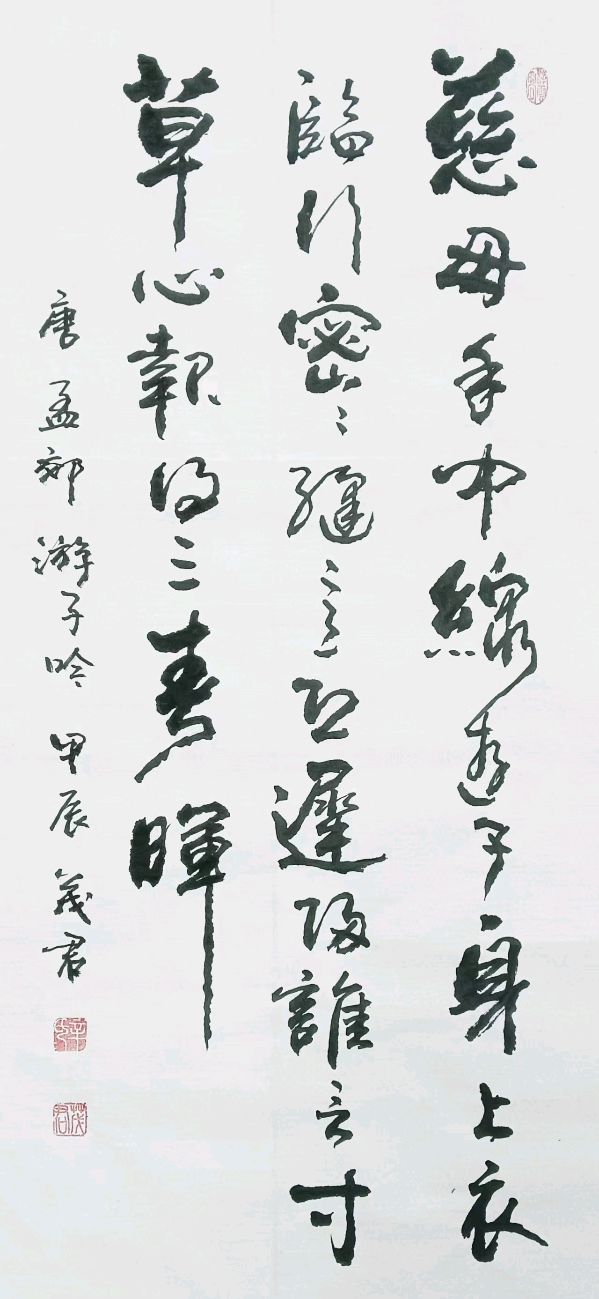 慈母手中線遊子身上衣
臨行密〻縫意恐遲歸誰言寸
草心報得三春暉
唐孟郊游子吟 甲辰 茂君